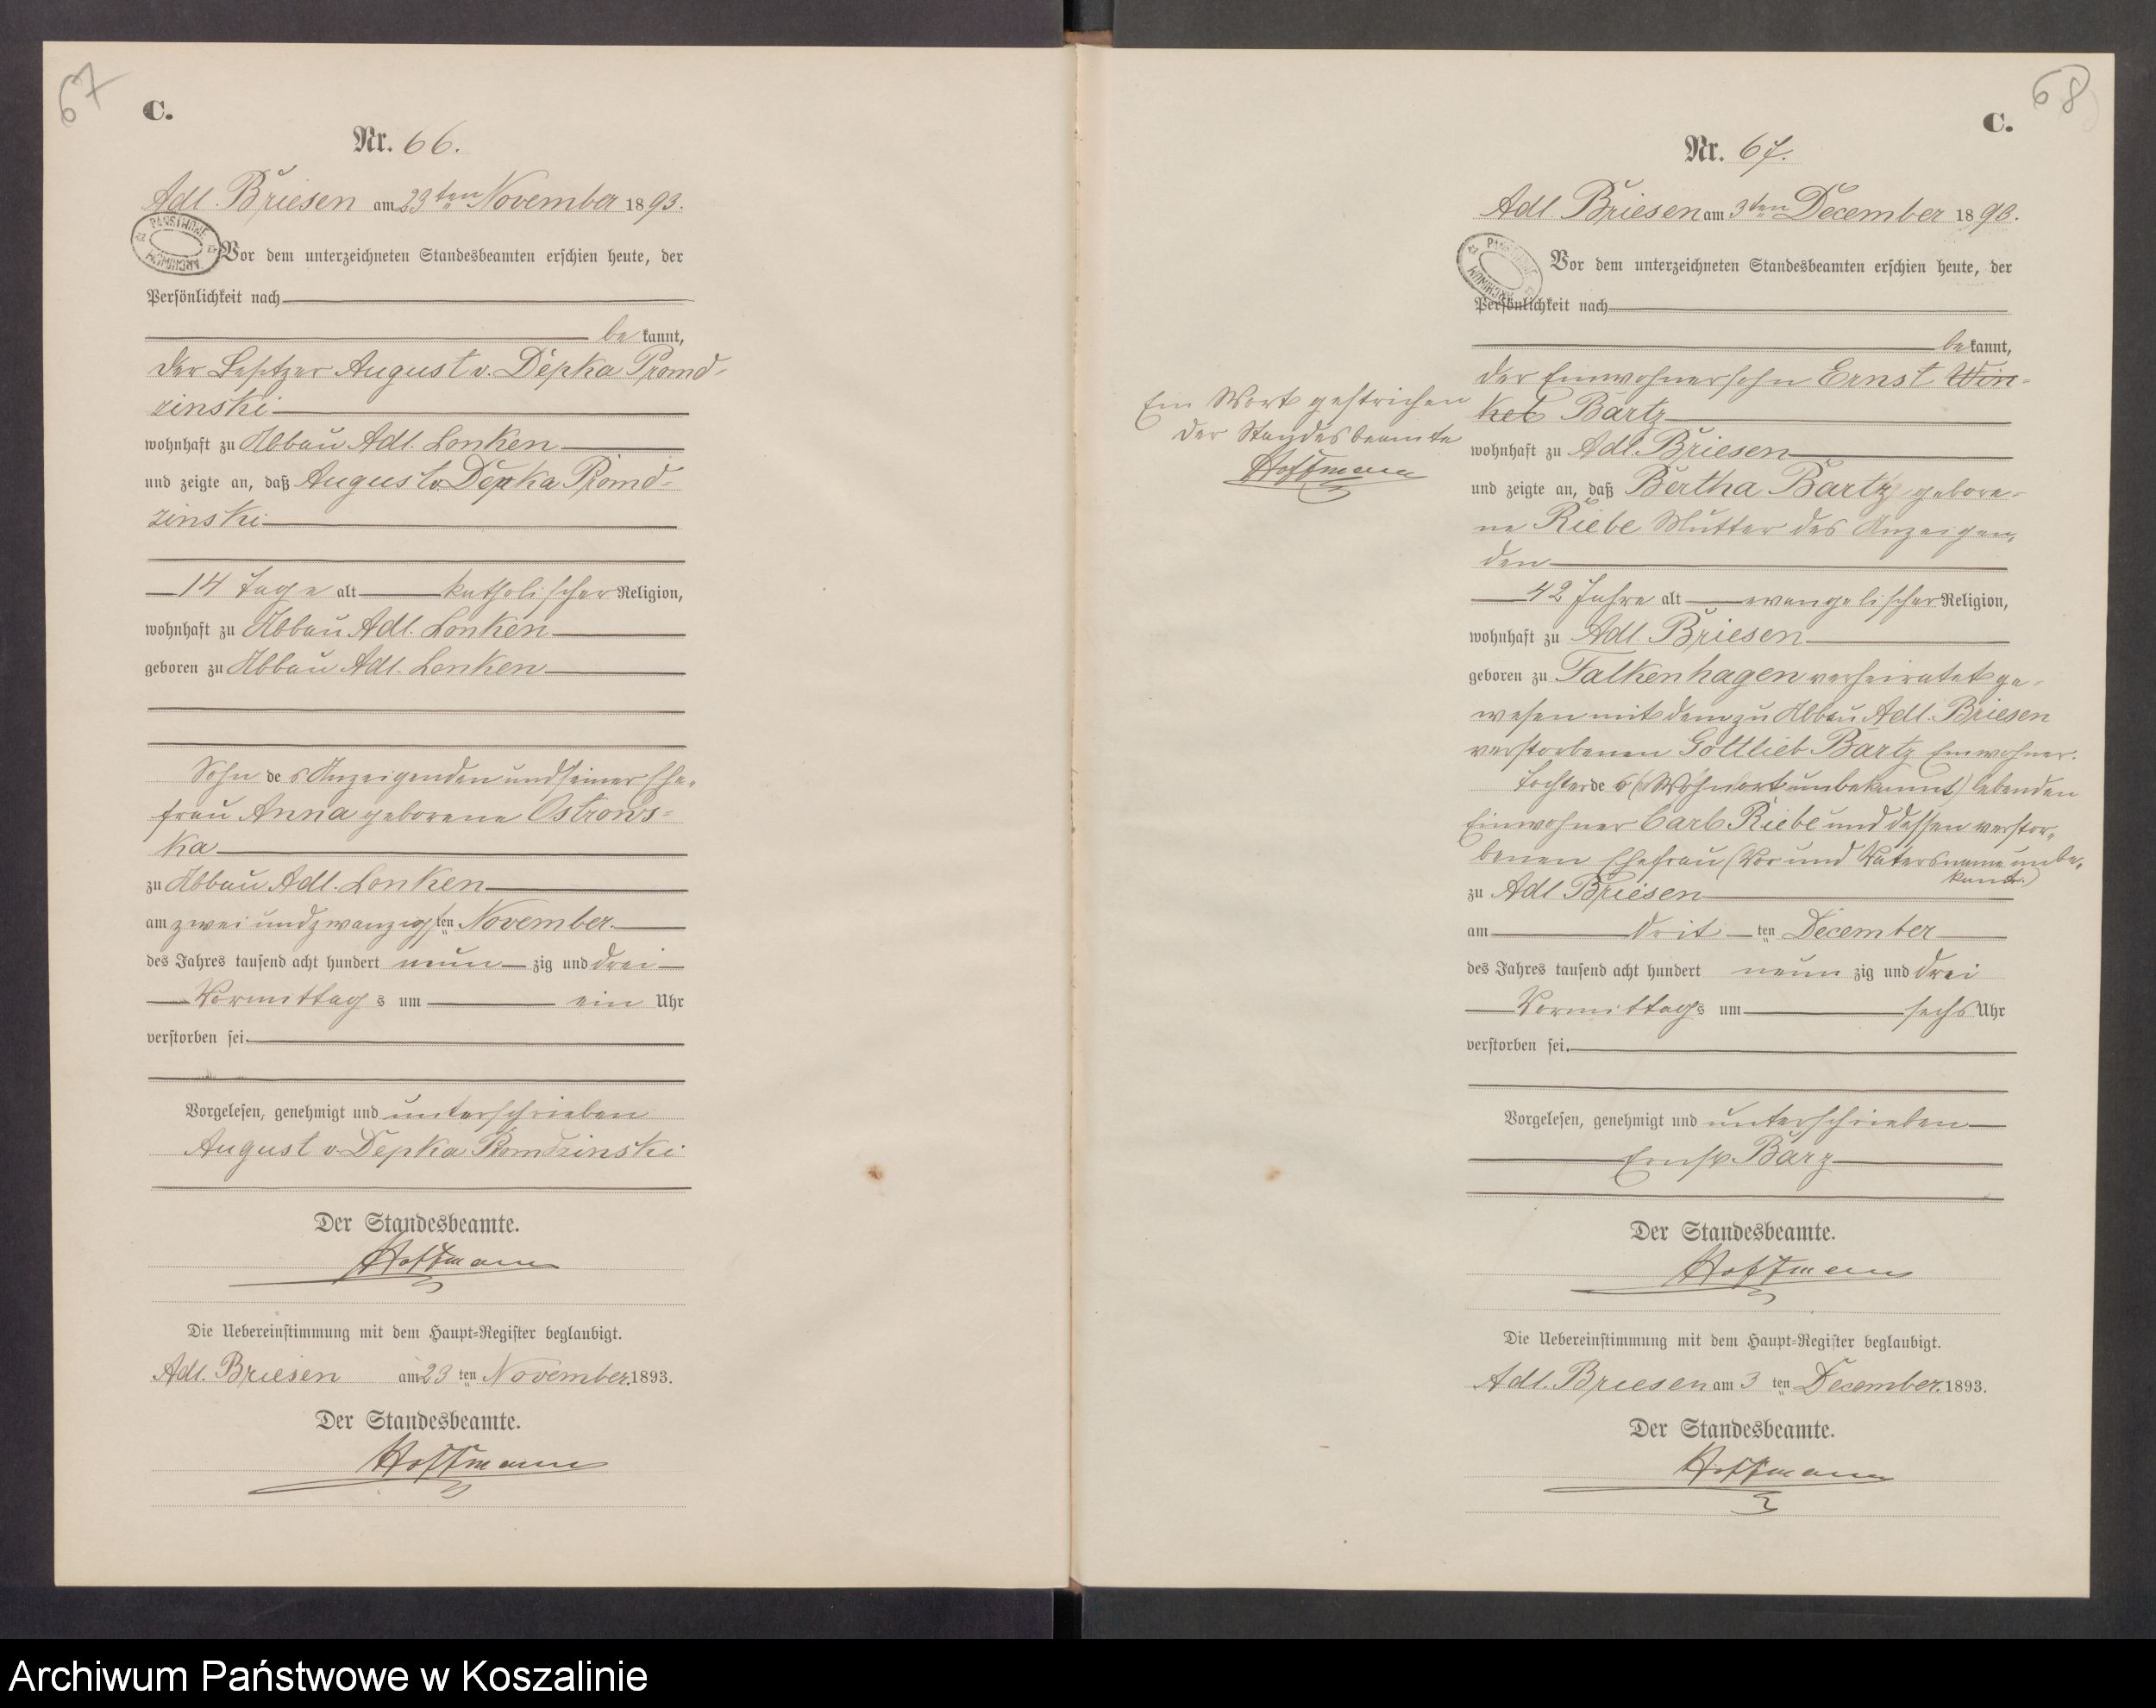 67
C.
Nr. 66.
Adl. Briesen am 23ten November 1893.
PAŃSTWOWE ARCHIWUM
Vor dem unterzeichneten Standesbeamten erschien heute, der
Persönlichkeit nach
be kannt,
der Besitzer August v. Depka Prond-
zinski
wohnhaft zu Abbau Adl. Lonken
und zeigte an, daß August v Depka Prond-
zinski
14 Tage alt katholischer Religion,
wohnhaft zu Abbau Adl. Lonken
geboren zu Abbau Adl. Lonken
Sohn des Anzeigenden und seiner Ehe-
frau Anna geborene Ostrows-
ka
zu Abbau Adl. Lonken
am zwei und zwanzigsten November
des Jahres tausend acht hundert neun zig und drei
Vormittags um ein Uhr
verstorben sei.
Vorgelesen, genehmigt und unterschrieben
August v Depka Prondzinski
Der Standesbeamte.
Hoffmann
Die Uebereinstimmung mit dem Haupt-Register beglaubigt.
Adl. Briesen am 23 ten November 1893.
Der Standesbeamte.
Hoffmann
68
C.
Nr. 67.
Adl. Briesen am 3ten December 1893.
PAŃSTWOWE ARCHIWUM
Vor dem unterzeichneten Standesbeamten erschien heute, der
Persönlichkeit nach
be kannt,
der Einwohnersohn Ernst Win-
kel Bartz
Ein Wort gestrichen
Der Standesbeamte
Hoffmann
wohnhaft zu Adl. Briesen
und zeigte an, daß Bertha Bartz gebore-
ne Riebe Mutter des Anzeigen-
den
42 Jahre alt evangelischer Religion,
wohnhaft zu Adl. Briesen
geboren zu Falkenhagen verheiratet ge-
wesen mit dem zu Abbau Adl. Briesen
verstorbenen Gottlieb Bartz Einwohner.
Tochter des (Wohnort unbekannt) lebenden
Einwohner Carl Riebe und dessen verstor-
benen Ehefrau (Vor und Vatersname unbe-
kannt.)
zu Adl Briesen
am drit ten December
des Jahres tausend acht hundert neun zig und drei
Vormittags um sechs Uhr
verstorben sei.
Vorgelesen, genehmigt und unterschrieben
Ernst Barz
Der Standesbeamte.
Hoffmann
Die Uebereinstimmung mit dem Haupt-Register beglaubigt.
Adl. Briesen am 3 ten December 1893.
Der Standesbeamte.
Hoffmann
Archiwum Państwowe w Koszalinie